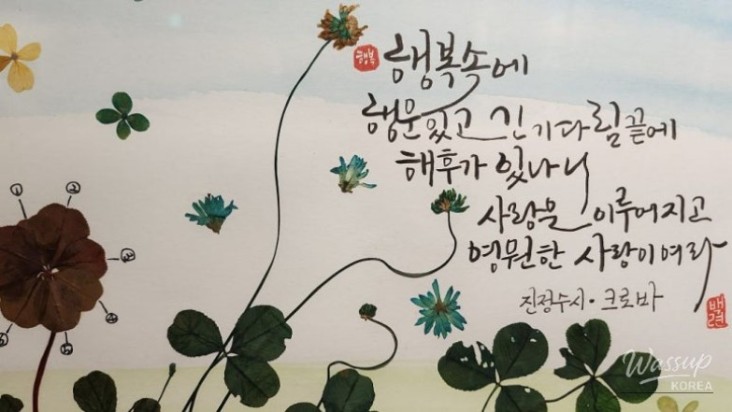 행복
행복속에
행운있고 긴 기다림끝에
해후가 있나니
사랑은 이루어지고
영원한 사랑이여라
진정수시·크로바
Wassup
KOREA